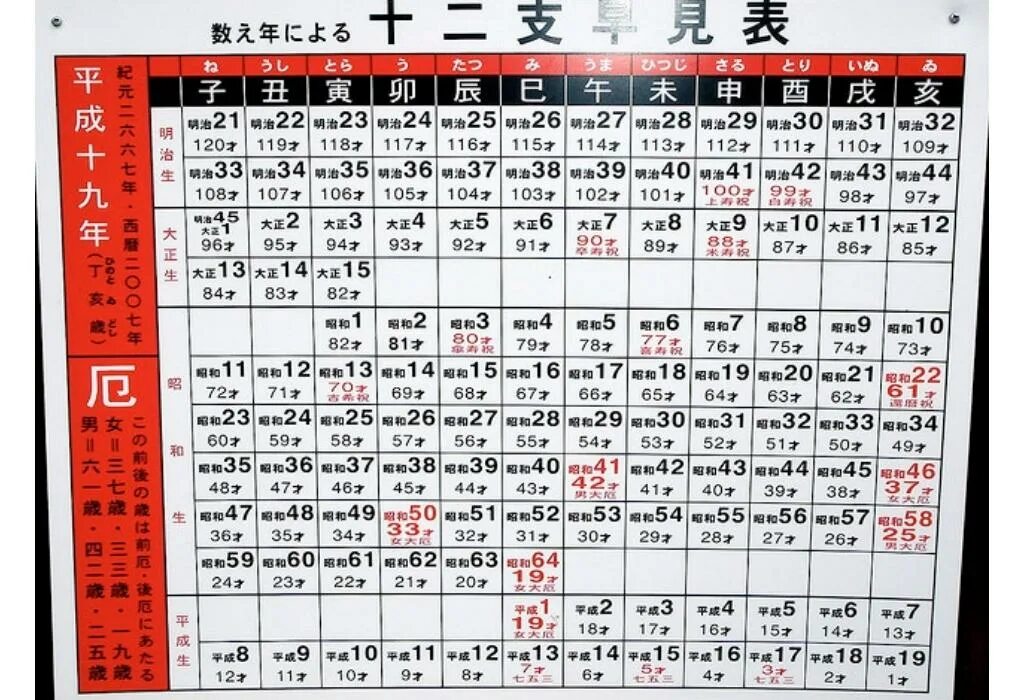 数え年による 十二支早見表
平成十九年(丁亥歳)
ひのと ゐ どし
紀元二六六七年・西暦二〇〇七年
厄
この前後の歳は前厄・後厄にあたる
女=三七歳・三三歳・一九歳
男=六一歳・四二歳・二五歳
ね うし とら う たつ み うま ひつじ さる とり いぬ ゐ
子 丑 寅 卯 辰 巳 午 未 申 酉 戌 亥
明治生
明治21 明治22 明治23 明治24 明治25 明治26 明治27 明治28 明治29 明治30 明治31 明治32
120才 119才 118才 117才 116才 115才 114才 113才 112才 111才 110才 109才
明治33 明治34 明治35 明治36 明治37 明治38 明治39 明治40 明治41 明治42 明治43 明治44
108才 107才 106才 105才 104才 103才 102才 101才 100才 99才 98才 97才
上寿祝 白寿祝
大正生
明治45 大正2 大正3 大正4 大正5 大正6 大正7 大正8 大正9 大正10 大正11 大正12
大正1
96才 95才 94才 93才 92才 91才 90才 89才 88才 87才 86才 85才
卒寿祝 米寿祝
大正13 大正14 大正15
84才 83才 82才
昭和生
昭和1 昭和2 昭和3 昭和4 昭和5 昭和6 昭和7 昭和8 昭和9 昭和10
82才 81才 80才 79才 78才 77才 76才 75才 74才 73才
傘寿祝 喜寿祝
昭和11 昭和12 昭和13 昭和14 昭和15 昭和16 昭和17 昭和18 昭和19 昭和20 昭和21 昭和22
72才 71才 70才 69才 68才 67才 66才 65才 64才 63才 62才 61才
古希祝 還暦祝
昭和23 昭和24 昭和25 昭和26 昭和27 昭和28 昭和29 昭和30 昭和31 昭和32 昭和33 昭和34
60才 59才 58才 57才 56才 55才 54才 53才 52才 51才 50才 49才
昭和35 昭和36 昭和37 昭和38 昭和39 昭和40 昭和41 昭和42 昭和43 昭和44 昭和45 昭和46
48才 47才 46才 45才 44才 43才 42才 41才 40才 39才 38才 37才
男大厄 女大厄
昭和47 昭和48 昭和49 昭和50 昭和51 昭和52 昭和53 昭和54 昭和55 昭和56 昭和57 昭和58
36才 35才 34才 33才 32才 31才 30才 29才 28才 27才 26才 25才
女大厄 男大厄
昭和59 昭和60 昭和61 昭和62 昭和63 昭和64
24才 23才 22才 21才 20才 19才
女大厄
平成生
平成1 平成2 平成3 平成4 平成5 平成6 平成7
19才 18才 17才 16才 15才 14才 13才
女大厄
平成8 平成9 平成10 平成11 平成12 平成13 平成14 平成15 平成16 平成17 平成18 平成19
12才 11才 10才 9才 8才 7才 6才 5才 4才 3才 2才 1才
七五三 七五三 七五三